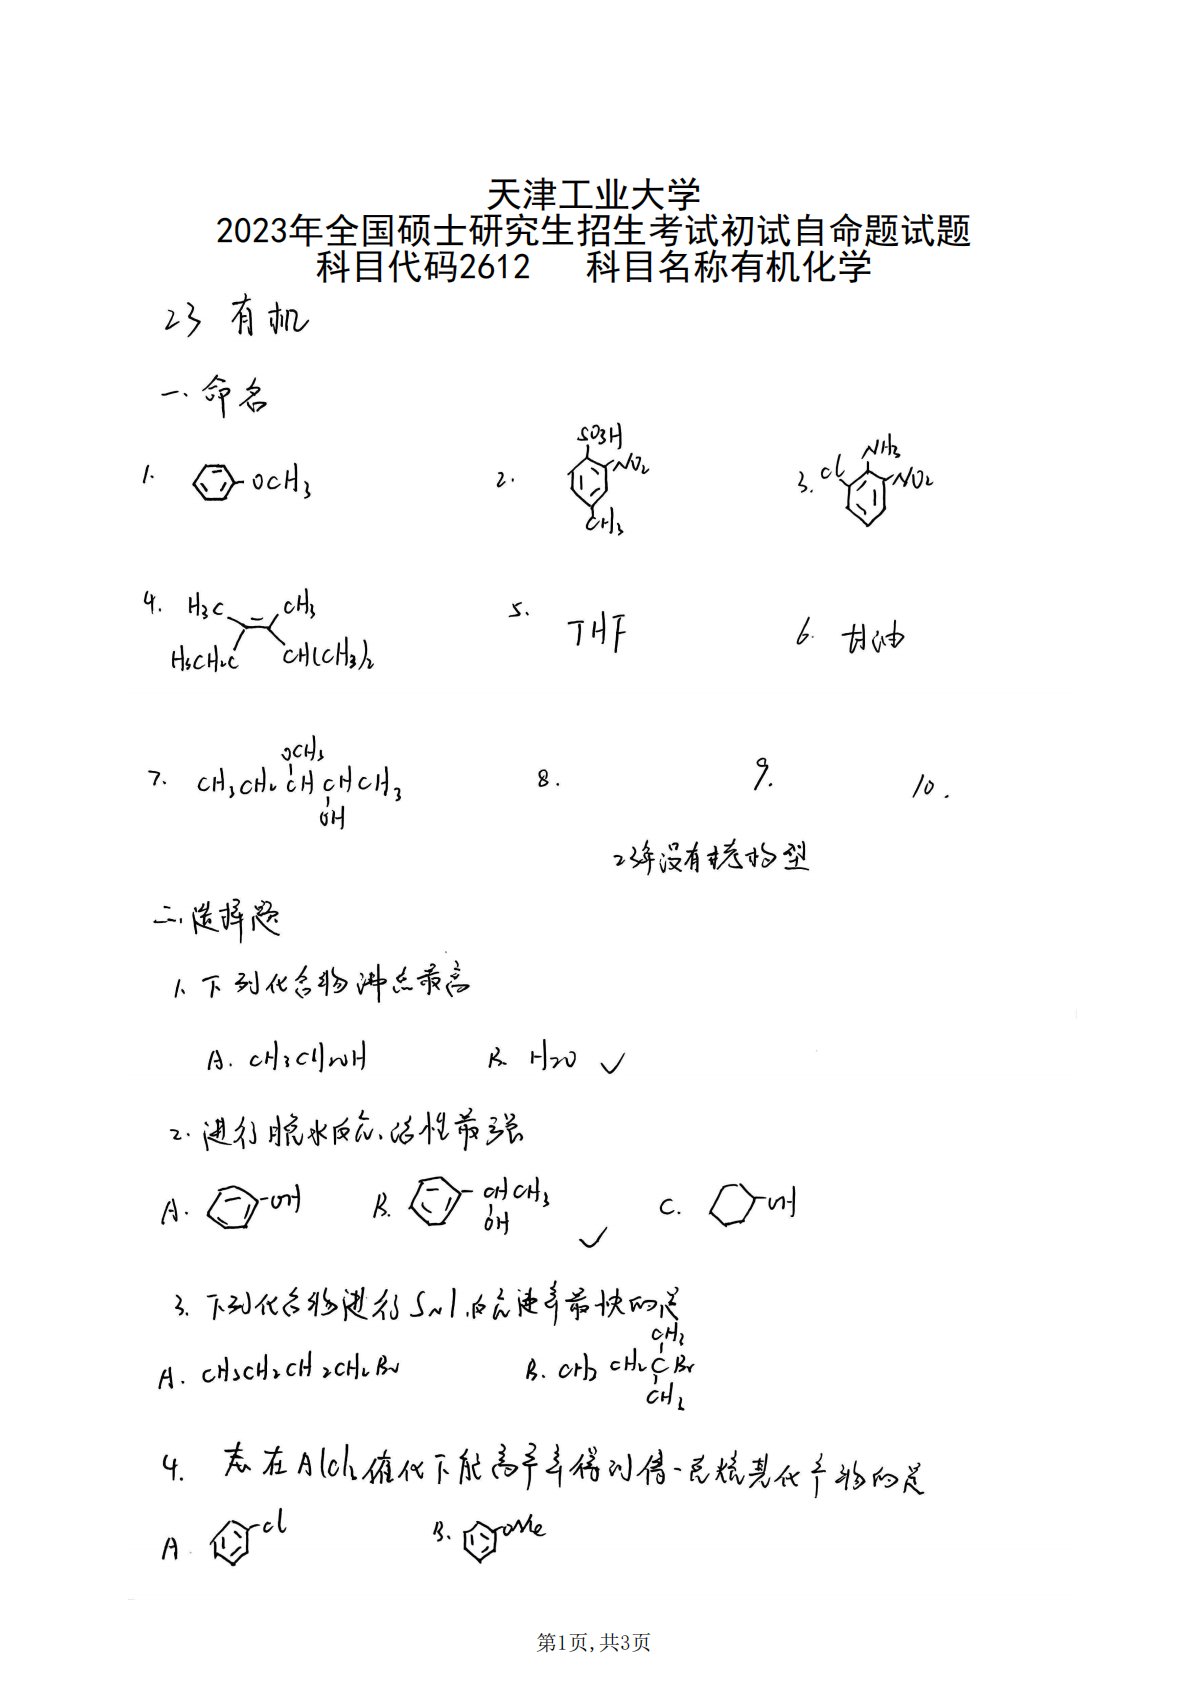 天津工业大学
2023年全国硕士研究生招生考试初试自命题试题
科目代码2612 科目名称有机化学
23 有机
一、命名
1. OCH3
2. SO3H NO2 CH3
3. Cl NH2 NO2
4. H3C CH3 H3CH2C CH(CH3)2
5. THF
6. 甘油
7. CH3CH2CHCHCH3 OCH3 OH
8.
9.
10.
23年没有结构型
二、选择题
1. 下列化合物沸点最高
A. CH3CH2OH B. H2O ✓
2. 进行脱水反应,活性最强
A. OH B. CHCH3 OH ✓ C. OH
3. 下列化合物进行SN1反应速率最快的是
A. CH3CH2CH2CH2Br B. CH3CH2CBr CH3 CH3
4. 在AlCl3催化下能高产率得到单一烷基化产物的是
A. Cl B. OMe
第1页,共3页